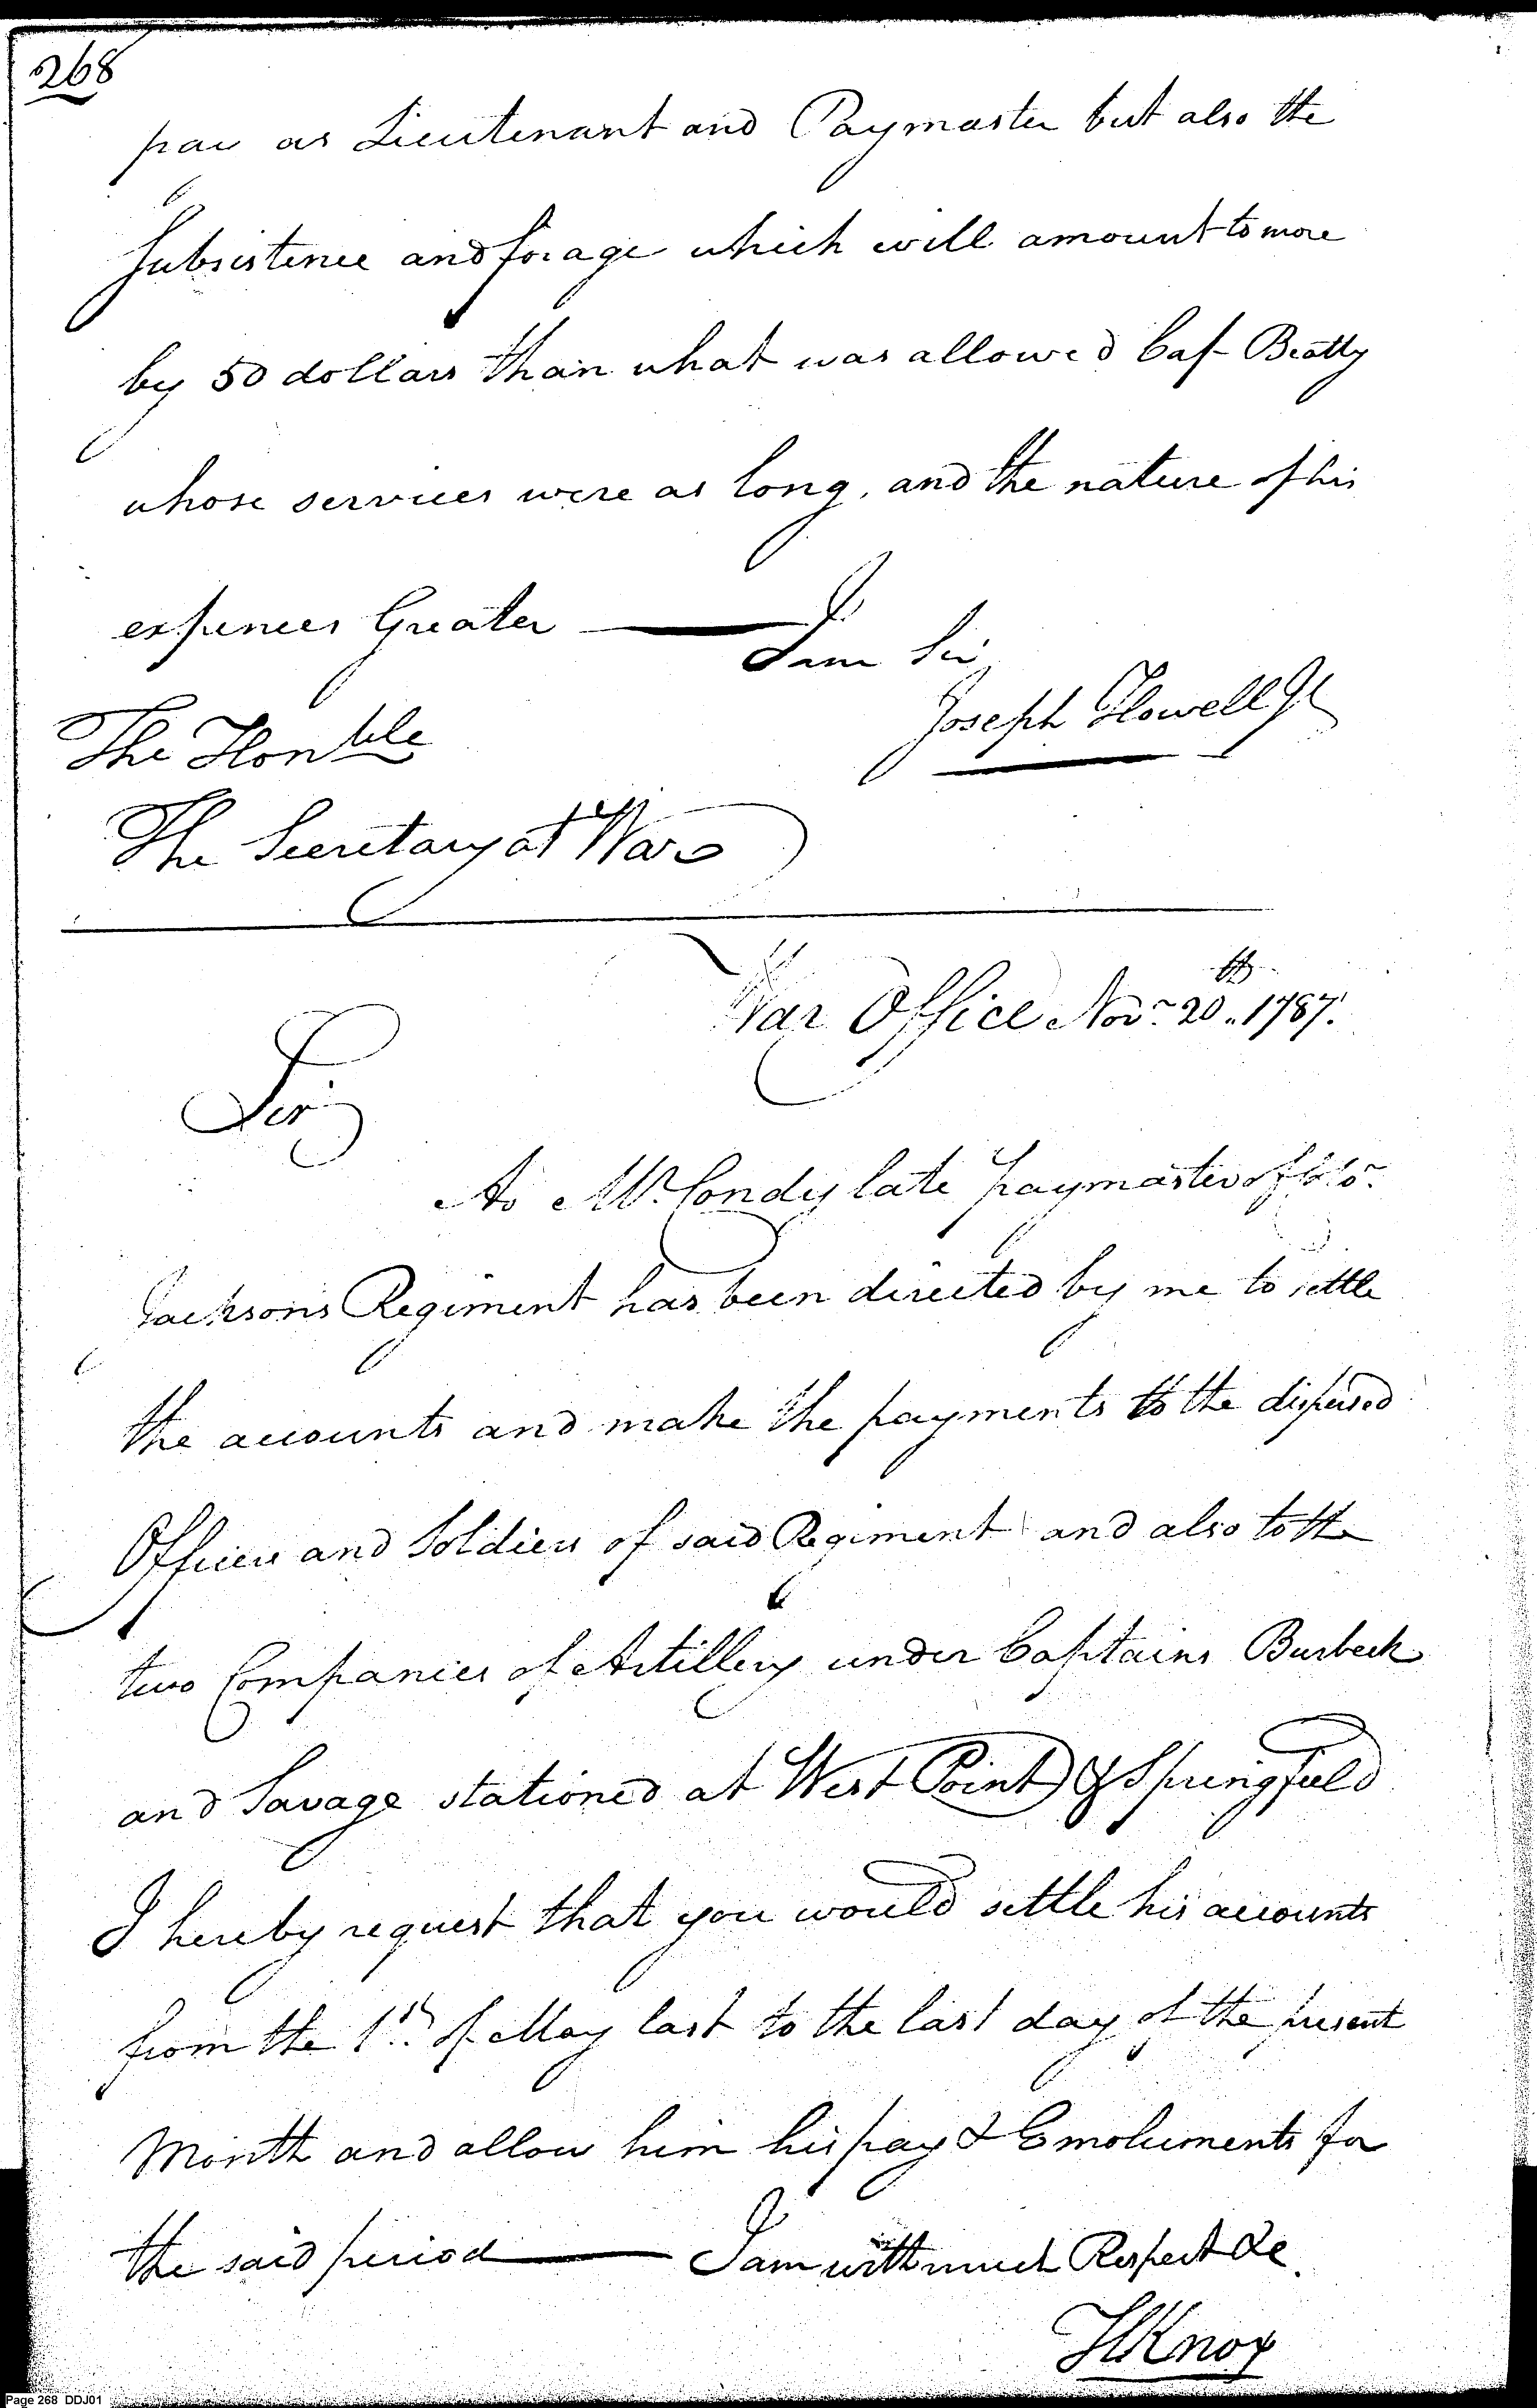 268
pay as Lieutenant and Paymaster but also the
Subsistence and forage which will amount to more
by 50 dollars than what was allowed Cap Beatty
whose services were as long, and the nature of his
expences Greater — I am Sir
Joseph Howell Jr
The Honble
The Secretary at War
War Office Novr 20th 1787.
Sir
As Mr. Condy late paymaster of
Jacksons Regiment has been directed by me to settle
the accounts and make the payments to the dispersed
Officers and Soldiers of said Regiment and also to the
two Companies of Artillery under Captains Burbeck
and Savage stationed at West Point & Springfield
I hereby request that you would settle his accounts
from the 1st of May last to the last day of the present
Month and allow him his pay & Emoluments for
the said period — I am with much Respect &c.
HKnox
Page 268 DDJ01